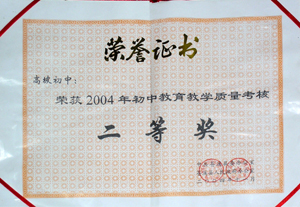 荣誉证书
高坡初中：
荣获2004年初中教育教学质量考核
二等奖